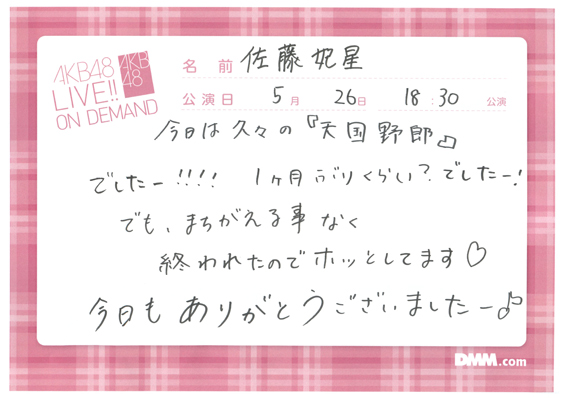 AKB48
LIVE!!
ON DEMAND
AKB
48
名前 佐藤妃星
公演日 5月 26日 18:30 公演
今日は久々の『天国野郎』
でしたー!!!! 1ヶ月ぶりくらい?でしたー!
でも、まちがえる事なく
終われたのでホッとしてます♡
今日もありがとうございましたー♪
DMM.com